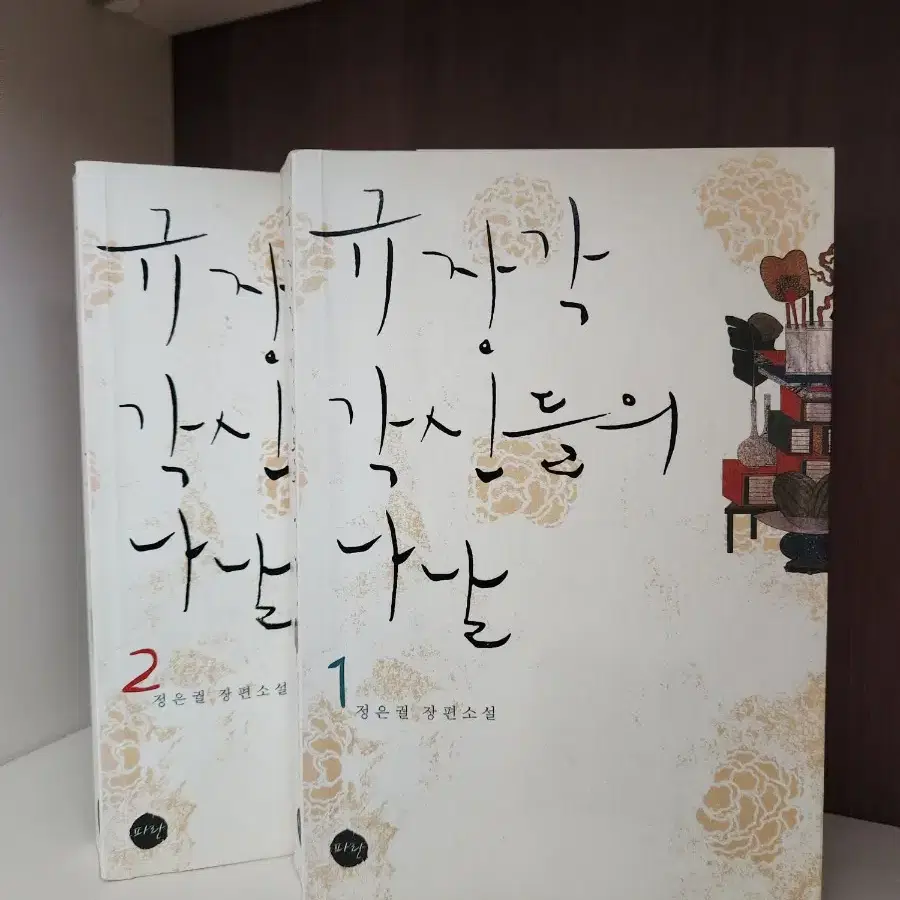 규장각
각신들의
나날
1
정은궐 장편소설
파란
규장
각신
나날
2
정은궐 장편소설
파란